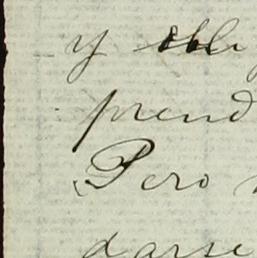 y obli
prend
Pero
darse